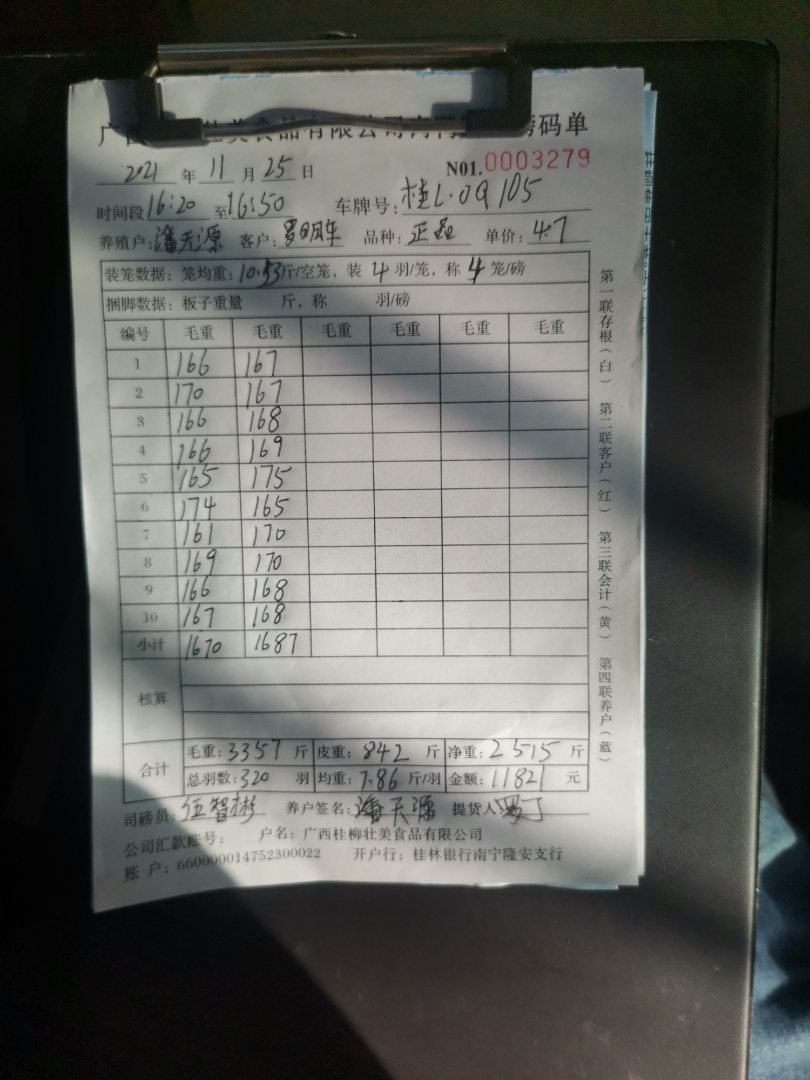 广西 壮美食品有限公司 磅码单
2021 年 11 月 25 日 N01.0003279
时间段16:20 至16:50 车牌号: 桂L·0Q105
养殖户: 潘天源 客户: 品种: 正品 单价: 4.7
装笼数据: 笼均重: 10.53斤/空笼, 装 4 羽/笼, 称 4 笼/磅
捆脚数据: 板子重量 斤, 称 羽/磅
编号 毛重 毛重 毛重 毛重 毛重 毛重
1 166 167
2 170 167
3 166 168
4 166 169
5 165 175
6 174 165
7 161 170
8 169 170
9 166 168
10 167 168
小计 1670 1687
核算
合计 毛重: 3357 斤 皮重: 842 斤 净重: 2515 斤
总羽数: 320 羽 均重: 7.86 斤/羽 金额: 11821 元
司磅员: 伍智彬 养户签名: 潘天源 提货人
公司汇款账号: 户名: 广西桂柳壮美食品有限公司
账 户: 660000014752300022 开户行: 桂林银行南宁隆安支行
第一联存根(白) 第二联客户(红) 第三联会计(黄) 第四联养户(蓝)